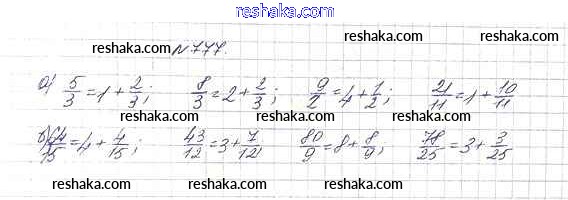 reshaka.com
№777.
reshaka.com reshaka.com reshaka.com
а) 5/3 = 1 + 2/3; 8/3 = 2 + 2/3; 9/2 = 4 + 1/2; 21/11 = 1 + 10/11
reshaka.com reshaka.com reshaka.com
б) 64/15 = 4 + 4/15; 43/12 = 3 + 7/12; 80/9 = 8 + 8/9; 78/25 = 3 + 3/25
reshaka.com reshaka.com reshaka.com